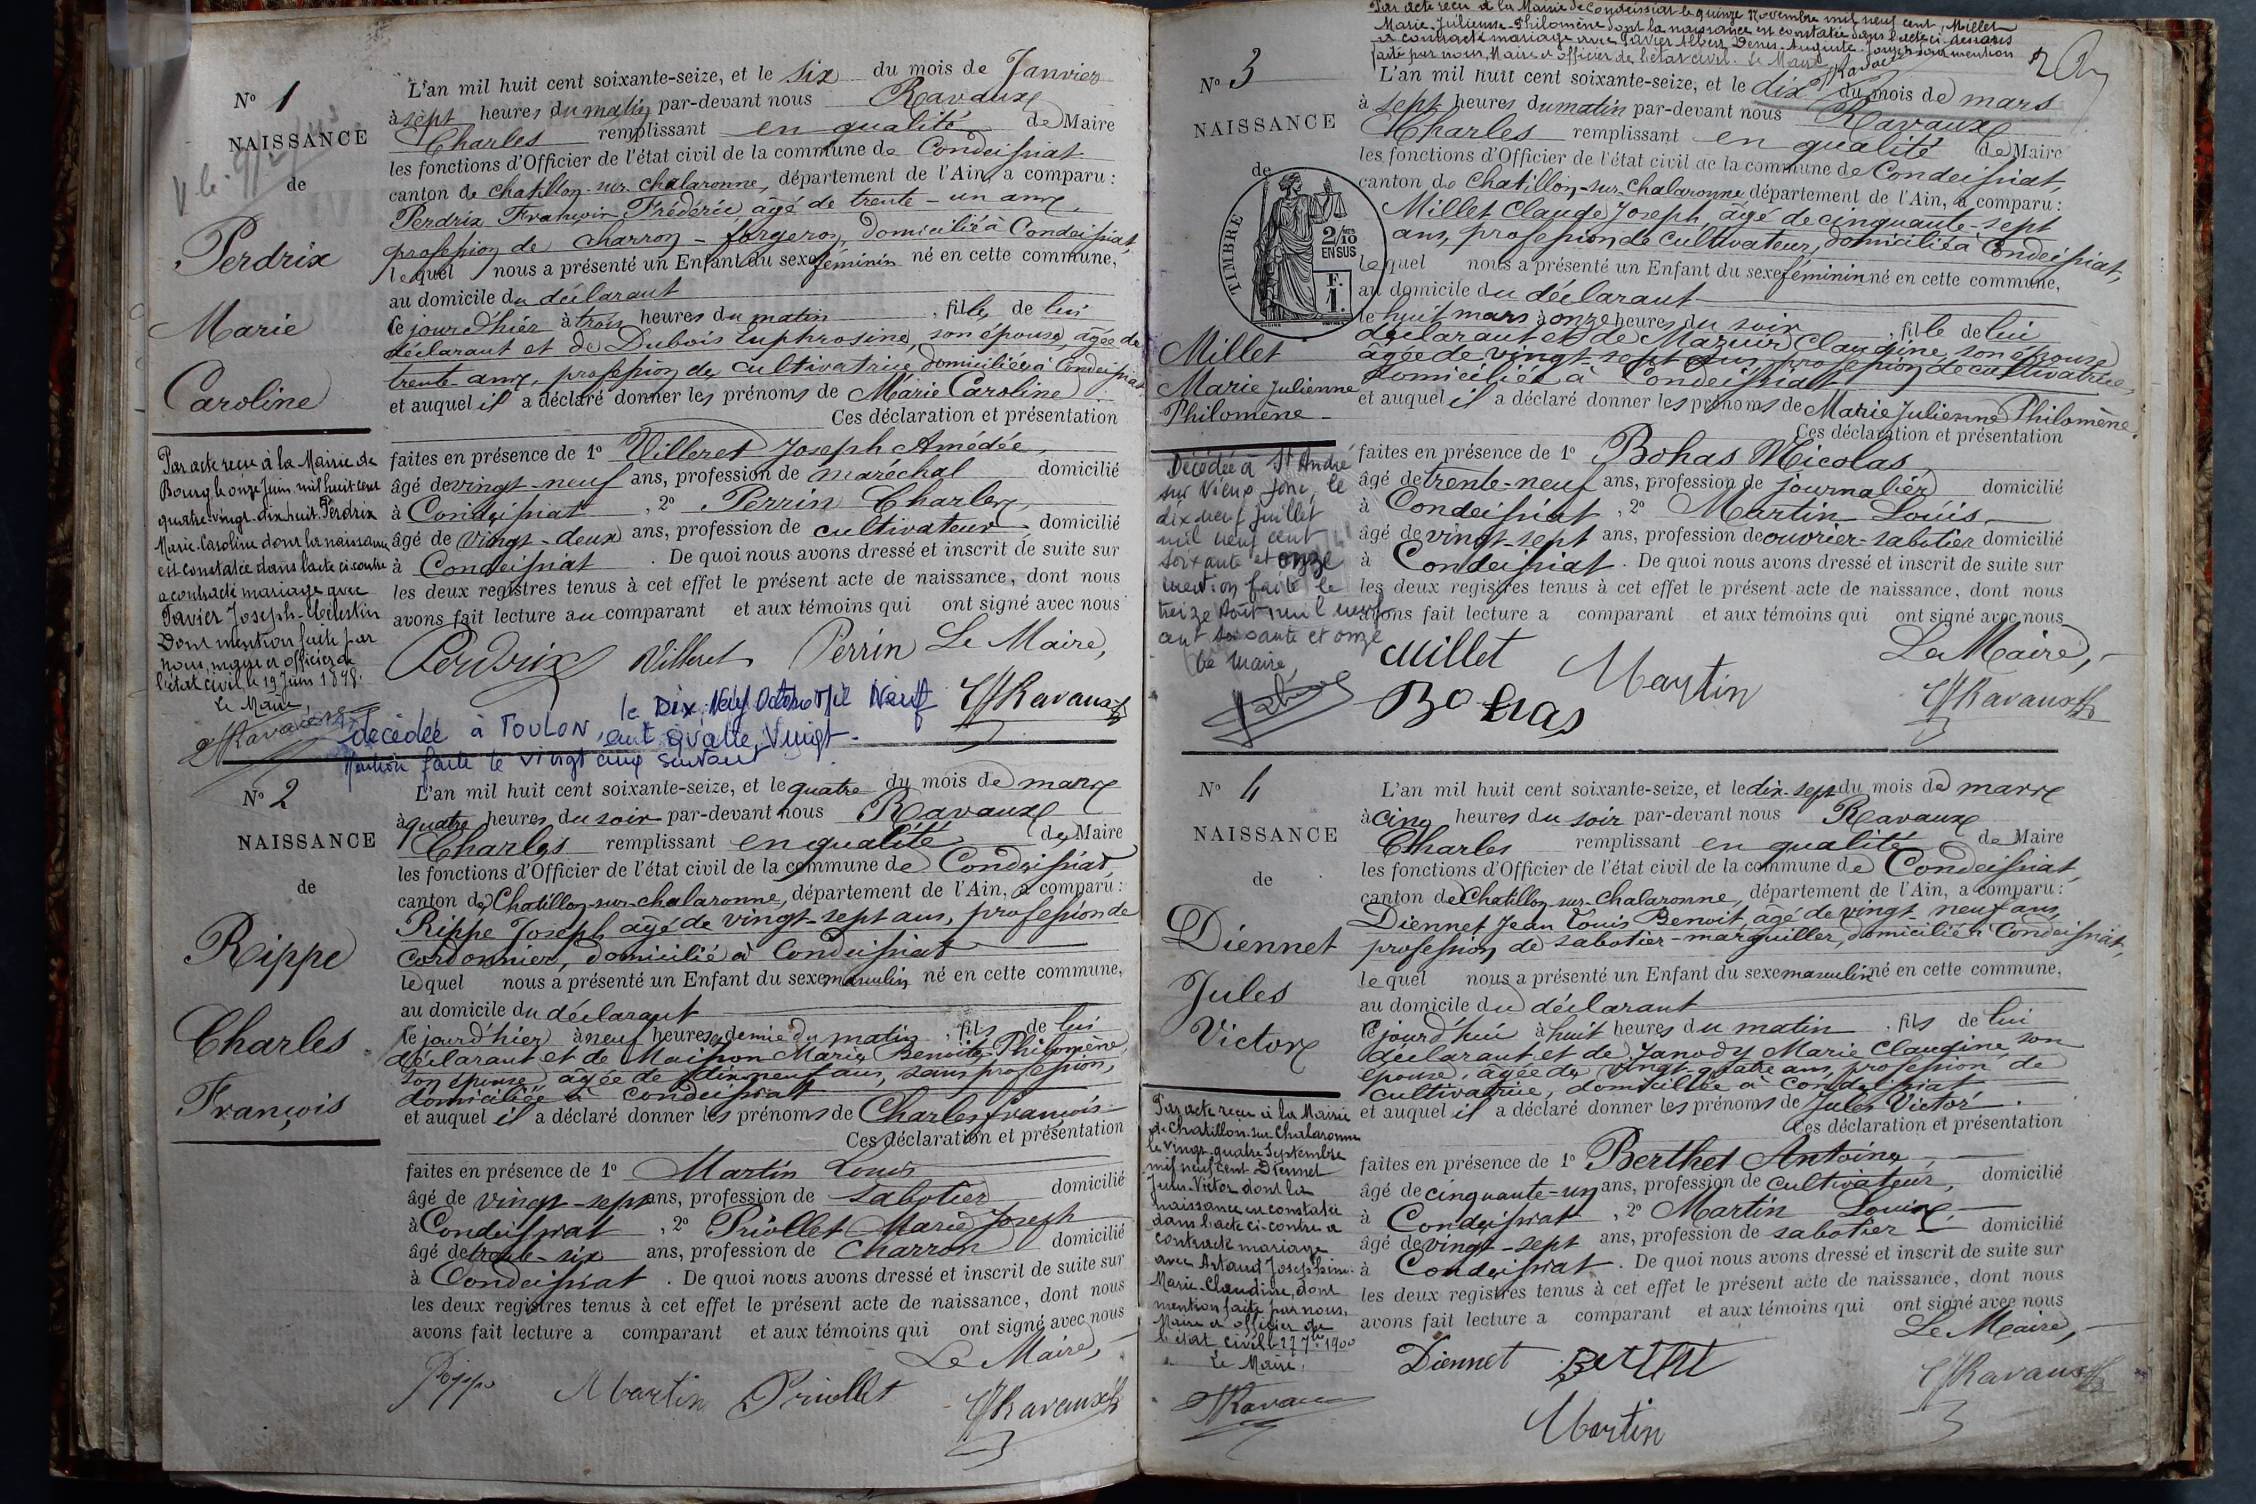 N° 1
NAISSANCE
de
Perdrix
Marie
Caroline
Par acte reçu à la Mairie de
Bourg le onze Juin mil huit cent
quatre-vingt-dix-huit Perdrix
Marie-Caroline dont la naissance
est constatée dans l'acte ci-contre
a contracté mariage avec
Tavier Joseph-Célestin
Dont mention faite par
nous, maire et officier de
l'état civil, le 19 Juin 1898.
Le Maire,
Ravaux
L'an mil huit cent soixante-seize, et le six du mois de Janvier
à sept heures du matin par-devant nous Ravaux
Charles remplissant en qualité de Maire
les fonctions d'Officier de l'état civil de la commune de Condeissiat
canton de Chatillon-sur-Chalaronne, département de l'Ain, a comparu :
Perdrix François Frédéric âgé de trente-un ans,
profession de charron-forgeron, domicilié à Condeissiat,
lequel nous a présenté un Enfant du sexe féminin né en cette commune,
au domicile du déclarant
le jour d'hier à trois heures du matin, fille de lui
déclarant et de Dubois Euphrosine, son épouse, âgée de
trente ans, profession de cultivatrice, domiciliée à Condeissiat
et auquel il a déclaré donner les prénoms de Marie Caroline
Ces déclaration et présentation
faites en présence de 1° Villeret Joseph Amédée,
âgé de vingt-neuf ans, profession de maréchal domicilié
à Condeissiat, 2° Perrin Charles,
âgé de vingt-deux ans, profession de cultivateur, domicilié
à Condeissiat. De quoi nous avons dressé et inscrit de suite sur
les deux registres tenus à cet effet le présent acte de naissance, dont nous
avons fait lecture au comparant et aux témoins qui ont signé avec nous
Perdrix Villeret Perrin Le Maire,
Ravaux
décédée à TOULON, le Dix Neuf Octobre Mil Neuf
cent quatre Vingt.
Mention faite le vingt cinq suivant
N° 2
NAISSANCE
de
Rippe
Charles
François
L'an mil huit cent soixante-seize, et le quatre du mois de mars
à quatre heures du soir par-devant nous Ravaux
Charles remplissant en qualité de Maire
les fonctions d'Officier de l'état civil de la commune de Condeissiat,
canton de Chatillon-sur-chalaronne, département de l'Ain, a comparu :
Rippe Joseph, âgé de vingt-sept ans, profession de
cordonnier, domicilié à Condeissiat
lequel nous a présenté un Enfant du sexe masculin né en cette commune,
au domicile du déclarant
le jour d'hier à neuf heures et demie du matin, fils de lui
déclarant et de Maisson Marie Benoite Philomène,
son épouse, âgée de dix neuf ans, sans profession,
domiciliée à Condeissiat
et auquel il a déclaré donner les prénoms de Charles François
Ces déclaration et présentation
faites en présence de 1° Martin Louis
âgé de vingt-sept ans, profession de sabotier domicilié
à Condeissiat, 2° Priollet Marie Joseph
âgé de trente-six ans, profession de charron domicilié
à Condeissiat. De quoi nous avons dressé et inscrit de suite sur
les deux registres tenus à cet effet le présent acte de naissance, dont nous
avons fait lecture a comparant et aux témoins qui ont signé avec nous
Le Maire,
Rippe Martin Priollet Ravaux
Par acte reçu à la Mairie de Condeissiat le quinze Novembre mil neuf cent, Millet
Marie-Julienne-Philomène dont la naissance est constatée dans l'acte ci-dessous
a contracté mariage avec Tavier Albert Denis-Auguste-Joseph dont mention
faite par nous, Maire et officier de l'état civil. Le Maire,
Ravaux
N° 3
NAISSANCE
de
TIMBRE
2/10 EN SUS
F. 1.
Millet
Marie Julienne
Philomène
Décédée à St André
sur Vieux Jonc, le
dix neuf juillet
mil neuf cent
soixante et onze
mention faite le
treize août mil neuf
cent soixante et onze
Le Maire,
L'an mil huit cent soixante-seize, et le dix du mois de mars
à sept heures du matin par-devant nous Ravaux
Charles remplissant en qualité de Maire
les fonctions d'Officier de l'état civil de la commune de Condeissiat,
canton de Chatillon-sur-Chalaronne, département de l'Ain, a comparu :
Millet Claude Joseph, âgé de cinquante-sept
ans, profession de cultivateur, domicilié à Condeissiat,
lequel nous a présenté un Enfant du sexe féminin né en cette commune,
au domicile du déclarant
le huit mars à onze heures du soir, fille de lui
déclarant et de Mazuir Claudine, son épouse
âgée de vingt-sept ans, profession de cultivatrice,
domiciliée à Condeissiat
et auquel il a déclaré donner les prénoms de Marie Julienne Philomène.
Ces déclaration et présentation
faites en présence de 1° Bohas Nicolas,
âgé de trente-neuf ans, profession de journalier domicilié
à Condeissiat, 2° Martin Louis,
âgé de vingt-sept ans, profession de ouvrier-sabotier domicilié
à Condeissiat. De quoi nous avons dressé et inscrit de suite sur
les deux registres tenus à cet effet le présent acte de naissance, dont nous
avons fait lecture a comparant et aux témoins qui ont signé avec nous
Le Maire,
Millet Martin
Bohas Ravaux
N° 4
NAISSANCE
de
Diennet
Jules
Victor
Par acte reçu à la Mairie
de Chatillon-sur-Chalaronne
le vingt-quatre Septembre
mil neuf cent Diennet
Jules-Victor dont la
naissance est constatée
dans l'acte ci-contre a
contracté mariage
avec Artaud Joséphine-
Marie-Claudine, dont
mention faite par nous,
Maire et officier de
l'état civil le 27 7bre 1900
Le Maire,
Ravaux
L'an mil huit cent soixante-seize, et le dix-sept du mois de mars
à cinq heures du soir par-devant nous Ravaux
Charles remplissant en qualité de Maire
les fonctions d'Officier de l'état civil de la commune de Condeissiat,
canton de Chatillon-sur-Chalaronne, département de l'Ain, a comparu :
Diennet Jean Louis Benoit, âgé de vingt-neuf ans,
profession de sabotier-marguiller, domicilié à Condeissiat,
lequel nous a présenté un Enfant du sexe masculin né en cette commune,
au domicile du déclarant
le jourd'hui à huit heures du matin, fils de lui
déclarant et de Janody Marie Claudine, son
épouse, âgée de vingt-quatre ans, profession de
cultivatrice, domiciliée à Condeissiat
et auquel il a déclaré donner les prénoms de Jules Victor.
Ces déclaration et présentation
faites en présence de 1° Berthet Antoine,
âgé de cinquante-un ans, profession de cultivateur, domicilié
à Condeissiat, 2° Martin Louis,
âgé de vingt-sept ans, profession de sabotier domicilié
à Condeissiat. De quoi nous avons dressé et inscrit de suite sur
les deux registres tenus à cet effet le présent acte de naissance, dont nous
avons fait lecture a comparant et aux témoins qui ont signé avec nous
Le Maire,
Diennet Berthet Ravaux
Martin